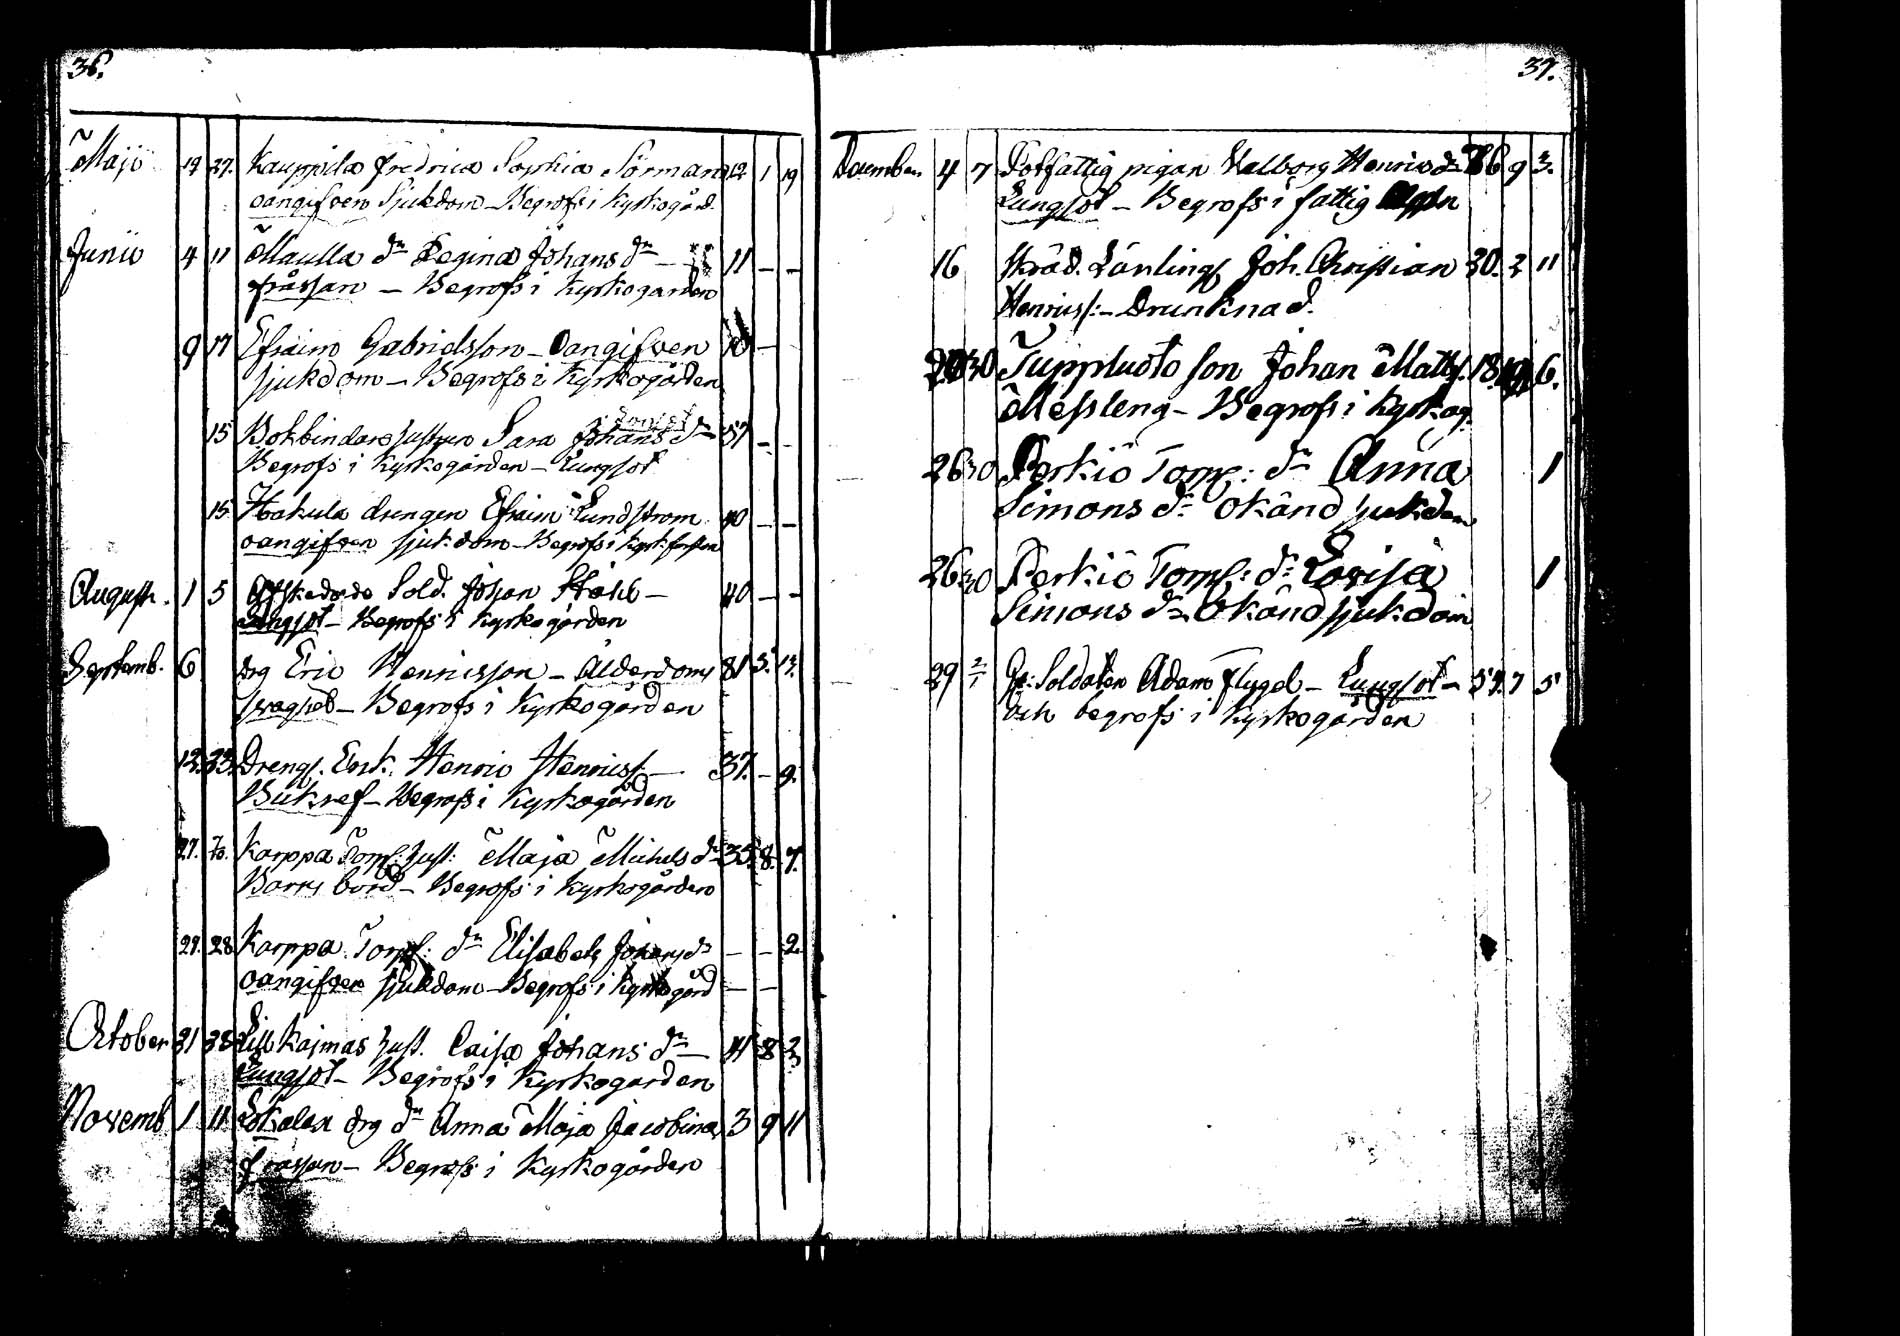 36.
Majo 19 27. Kauppila Fredrica Sophia Sörman 12 1 19
oangifven Sjukdom - Begrofs i Kyrkogård.
Junii 4 11 Maulla dr Regina Johans dr 11 - -
fråssan - Begrofs i Kyrkogården
9 17 Efraim Gabrielsson - oangifven -
sjukdom - Begrofs i Kyrkogården
15 Bokbindare hustrun Sara Johans dr 57 - -
Begrofs i Kyrkogården - Lungsot
15 Hakula drengen Efraim Lundstrom 40 - -
oangifven sjukdom - Begrofs i
August. 1 5 Afskedade Sold. Johan Ståhl - 40 - -
Lungsot - Begrofs i Kyrkogården
Septemb. 6 drg Eric Henricsson - Ålderdoms 81 5. 13.
svaghet - Begrofs i Kyrkogården
12. 23. Drengs. Enk. Henric Henricss. - 37. - 9.
Bukref - Begrofs i Kyrkogården
27. Karppa Torp. hust: Maja Michels dr 35. 8. 7.
Barns börd - Begrofs i Kyrkogården
29. 28 Karppa Torp: dr Elisabeth Johans dr - - 2
oangifven sjukdom - Begrofs i Kyrkogård - -
October 21 28 Lill Kajmas hust. Caisa Johans dr - 41 8 2
Lungsot - Begrofs i Kyrkogården
Novemb 1 11 Lokalax drg dr Anna Maja Jacobina 3 9 11
fråssan - Begrofs i Kyrkogården
37.
December 4 7 Fotfattig pigan Valborg Henrics dr 76 9 3.
Lungsot - Begrofs i fattig
16 Skräd. Lärling Joh. Christian 20. 2 11
Henricss: - Drunknad.
30 Tuppluoto son Johan Matts. 18. 6.
Messleng - Begrofs i Kyrkog.
26 30 Perkiö Torp: dr Anna 1
Simons dr Okänd sjukdom
26 30 Perkiö Torp: dr Lovisa 1
Simons dr Okänd sjukdom
29 2/1 Gr: Soldaten Adam Flygel - Lungsot - 59. 7 5
och begrofs i Kyrkogården